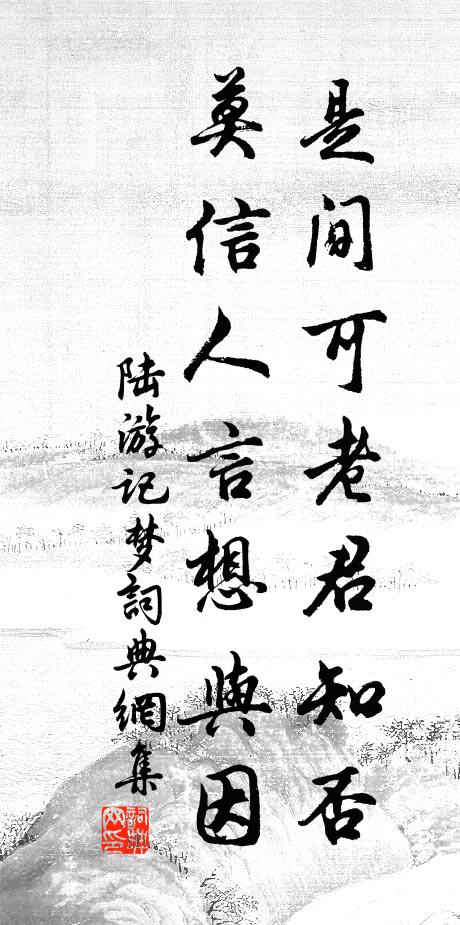 是间可老君知否
莫信人言想與因
陆游记梦詞典網集